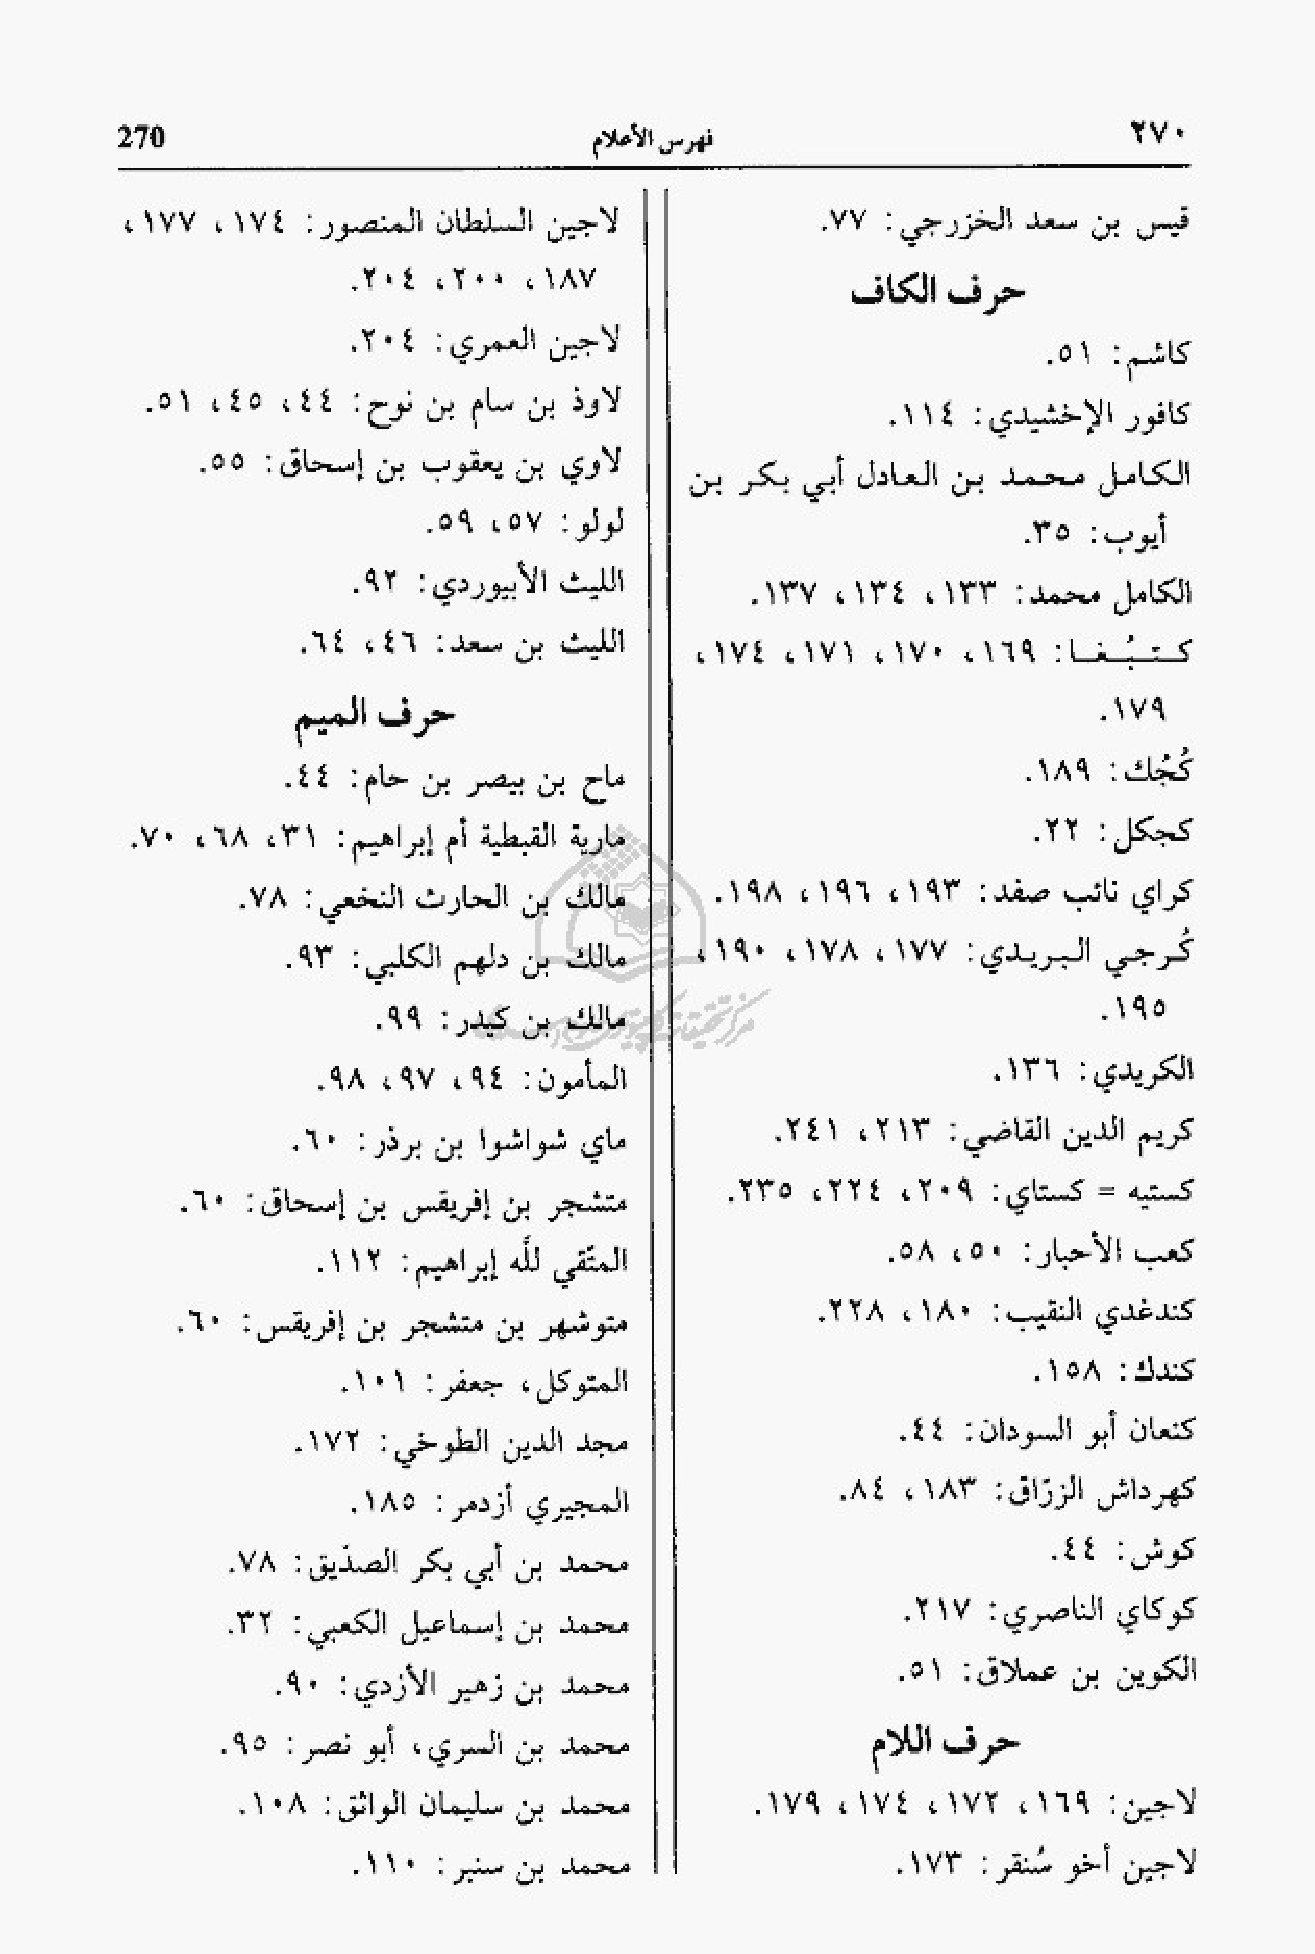 ٢٧٠
فهرس الأعلام
270
قيس بن سعد الخزرجي: ٧٧.
حرف الكاف
كاشم: ٥١.
كافور الإخشيدي: ١١٤.
الكامل محمد بن العادل أبي بكر بن
أيوب: ٣٥.
الكامل محمد: ١٣٣، ١٣٤، ١٣٧.
كتبُغا: ١٦٩، ١٧٠، ١٧١، ١٧٤،
١٧٩.
كُجُك: ١٨٩.
كجكل: ٢٢.
كراي نائب صفد: ١٩٣، ١٩٦، ١٩٨.
كُرجي البريدي: ١٧٧، ١٧٨، ١٩٠،
١٩٥.
الكريدي: ١٣٦.
كريم الدين القاضي: ٢١٣، ٢٤١.
كستيه = كستاي: ٢٠٩، ٢٢٤، ٢٣٥.
كعب الأحبار: ٥٠، ٥٨.
كندغدي النقيب: ١٨٠، ٢٢٨.
كندك: ١٥٨.
كنعان أبو السودان: ٤٤.
كهرداش الزرّاق: ١٨٣، ٨٤.
كوش: ٤٤.
كوكاي الناصري: ٢١٧.
الكوين بن عملاق: ٥١.
حرف اللام
لاجين: ١٦٩، ١٧٢، ١٧٤، ١٧٩.
لاجين أخو سُنقر: ١٧٣.
لاجين السلطان المنصور: ١٧٤، ١٧٧،
١٨٧، ٢٠٠، ٢٠٤.
لاجين العمري: ٢٠٤.
لاوذ بن سام بن نوح: ٤٤، ٤٥، ٥١.
لاوي بن يعقوب بن إسحاق: ٥٥.
لولو: ٥٧، ٥٩.
الليث الأبيوردي: ٩٢.
الليث بن سعد: ٤٦، ٦٤.
حرف الميم
ماح بن بيصر بن حام: ٤٤.
مارية القبطية أم إبراهيم: ٣١، ٦٨، ٧٠.
مالك بن الحارث النخعي: ٧٨.
مالك بن دلهم الكلبي: ٩٣.
مالك بن كيدر: ٩٩.
المأمون: ٩٤، ٩٧، ٩٨.
ماي شواشوا بن برذر: ٦٠.
متشجر بن إفريقس بن إسحاق: ٦٠.
المتّقي للّه إبراهيم: ١١٢.
متوشهر بن متشجر بن إفريقس: ٦٠.
المتوكل، جعفر: ١٠١.
مجد الدين الطوخي: ١٧٢.
المجيري أزدمر: ١٨٥.
محمد بن أبي بكر الصدّيق: ٧٨.
محمد بن إسماعيل الكعبي: ٣٢.
محمد بن زهير الأزدي: ٩٠.
محمد بن السري، أبو نصر: ٩٥.
محمد بن سليمان الواثق: ١٠٨.
محمد بن سنبر: ١١٠.